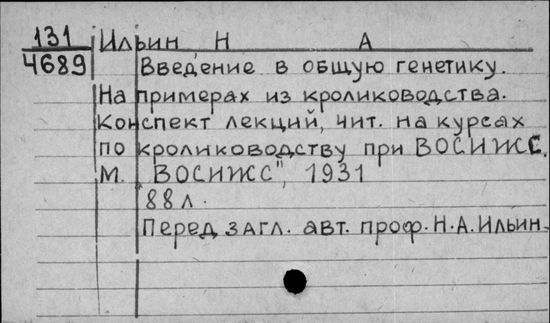 131 Ильин Н А
4689 Введение в общую генетику.
На примерах из кролиководства.
Конспект лекций, чит. на курсах
по кролиководству при ВОСИЖС.
М. "ВОСИЖС", 1931
88 л.
Перед загл. авт. проф. Н.А. Ильин.